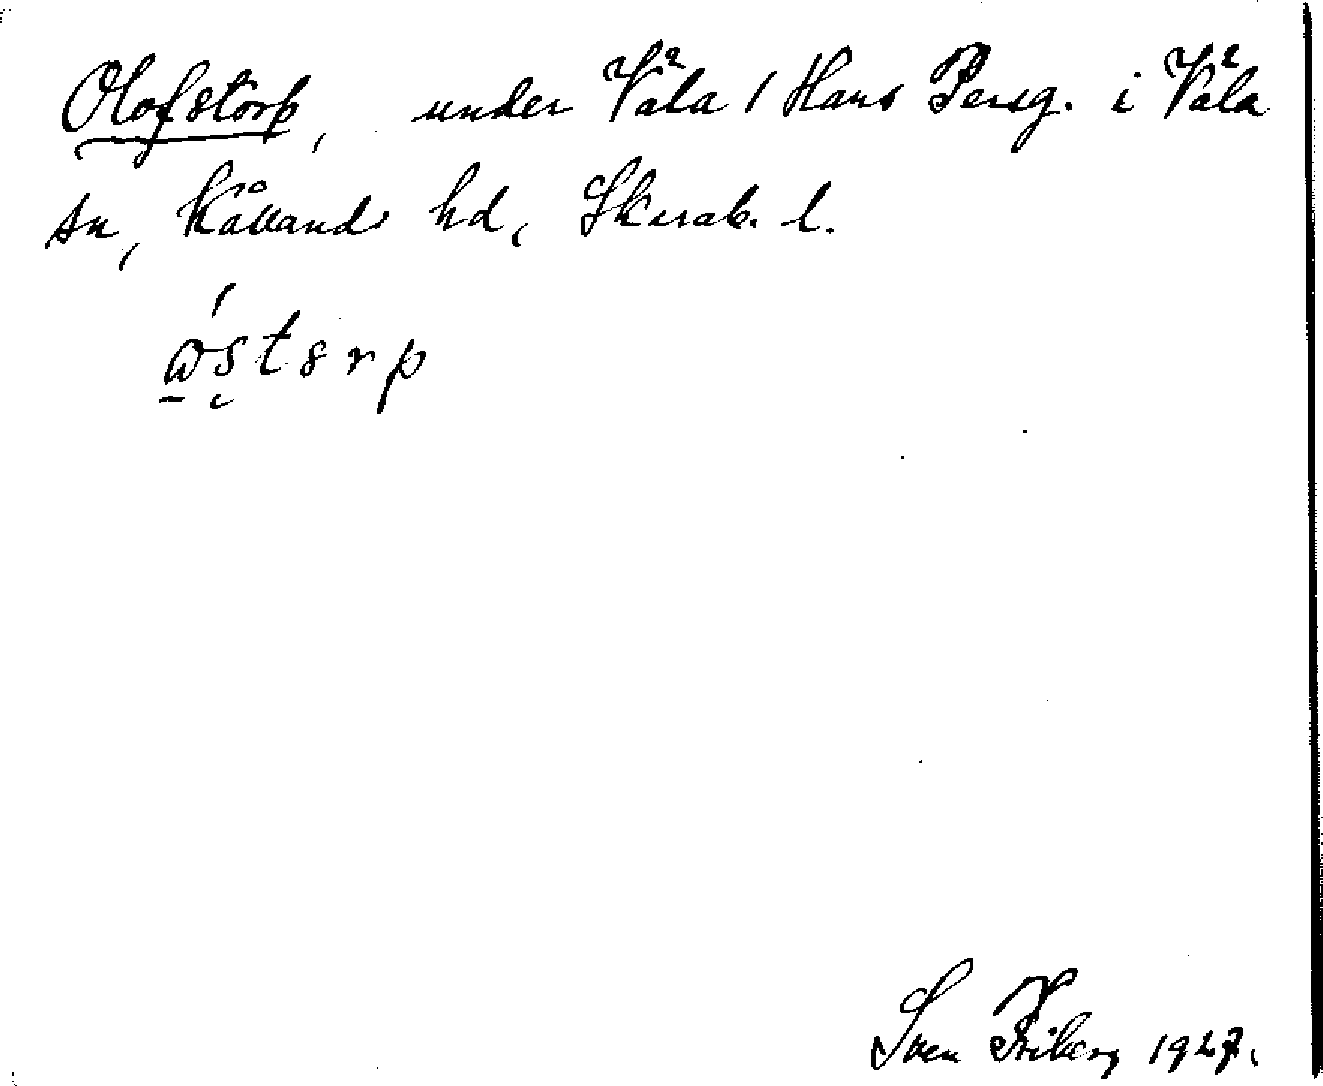 Olofstorp, under Våla / Hans Persg. i Våla
sn, Kålland hd, Skarab. l.
Sven Friberg 1927.